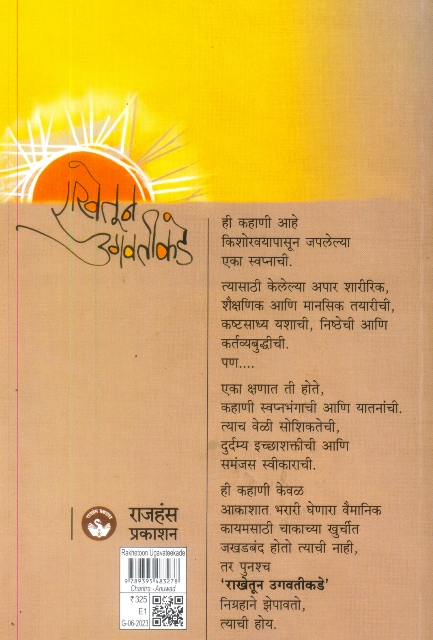 राखेतून
उगवतीकडे
ही कहाणी आहे
किशोरवयापासून जपलेल्या
एका स्वप्नाची.
त्यासाठी केलेल्या अपार शारीरिक,
शैक्षणिक आणि मानसिक तयारीची,
कष्टसाध्य यशाची, निष्ठेची आणि
कर्तव्यबुद्धीची.
पण....
एका क्षणात ती होते,
कहाणी स्वप्नभंगाची आणि यातनांची.
त्याच वेळी सोशिकतेची,
दुर्दम्य इच्छाशक्तीची आणि
समंजस स्वीकाराची.
ही कहाणी केवळ
आकाशात भरारी घेणारा वैमानिक
कायमसाठी चाकाच्या खुर्चीत
जखडबंद होतो त्याची नाही,
तर पुनश्च
‘राखेतून उगवतीकडे’
निग्रहाने झेपावतो,
त्याची होय.
राजहंस
प्रकाशन
Rakhetoon Ugavateekade
9789395483278
Charitra - Anuwad
₹ 325
E1
G-06-2023